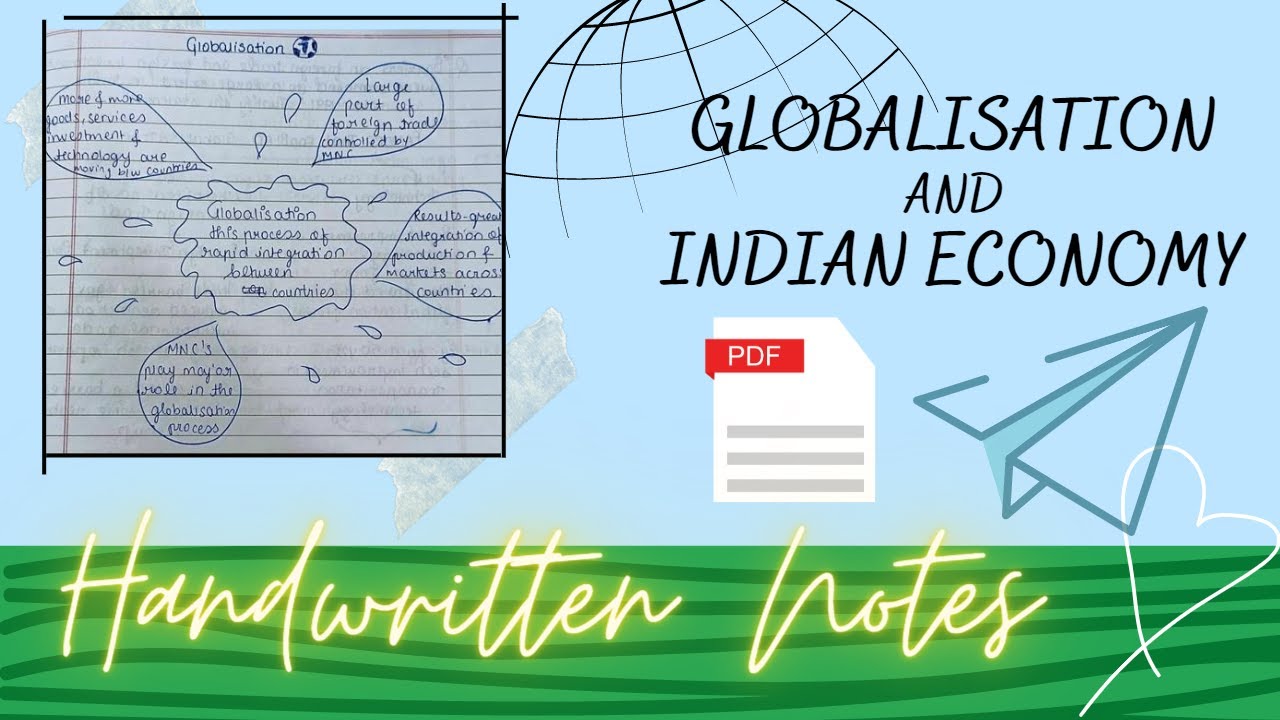 Globalisation
more & more
goods, services
investment &
technology are
moving b/w countries
Large
part of
foreign trade
controlled by
MNC
Globalisation
this process of
rapid integration
between
countries
Results-great
integration of
production &
markets across
countries.
MNC's
play major
role in the
globalisation
process
GLOBALISATION
AND
INDIAN ECONOMY
PDF
Handwritten Notes